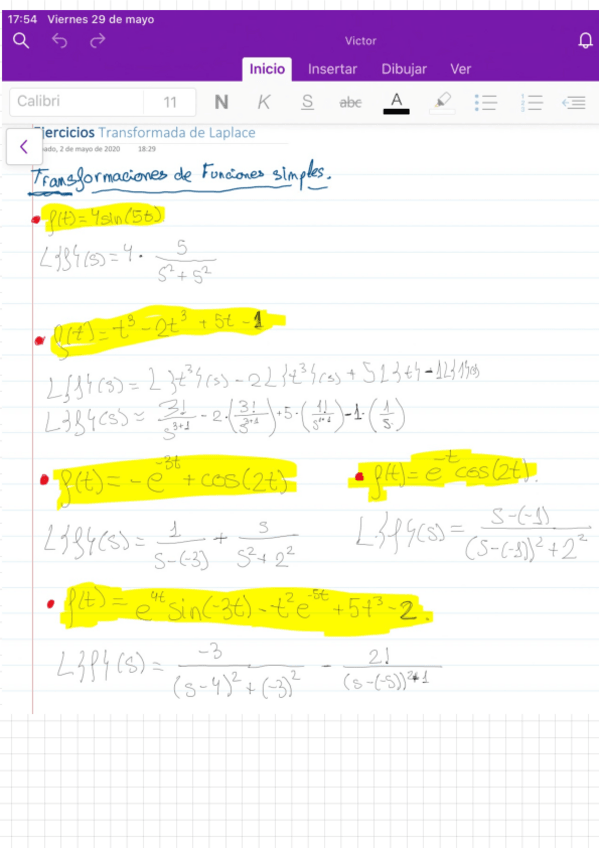 17:54 Viernes 29 de mayo
Victor
Inicio Insertar Dibujar Ver
Calibri 11 N K S abc A
Ejercicios Transformada de Laplace
ado, 2 de mayo de 2020 18:29
Transformaciones de Funciones simples.
f(t)=4sin(5t)
L{f}(s)=4· 5/(s²+5²)
f(t)=t³-2t³+5t-1
L{f}(s)=L{t³}(s)-2L{t³}(s)+5L{t}-1L{1}(s)
L{f}(s)=3!/s³⁺¹-2·(3!/s³⁺¹)+5·(1!/s¹⁺¹)-1·(1/s)
f(t)=-e⁻³ᵗ+cos(2t) f(t)=e⁻ᵗcos(2t).
L{f}(s)=1/(s-(-3))+s/(s²+2²) L{f}(s)=(s-(-1))/((s-(-1))²+2²)
f(t)=e⁴ᵗsin(-3t)-t²e⁻⁵ᵗ+5t³-2.
L{f}(s)=-3/((s-4)²+(-3)²)-2!/(s-(-5))²⁺¹